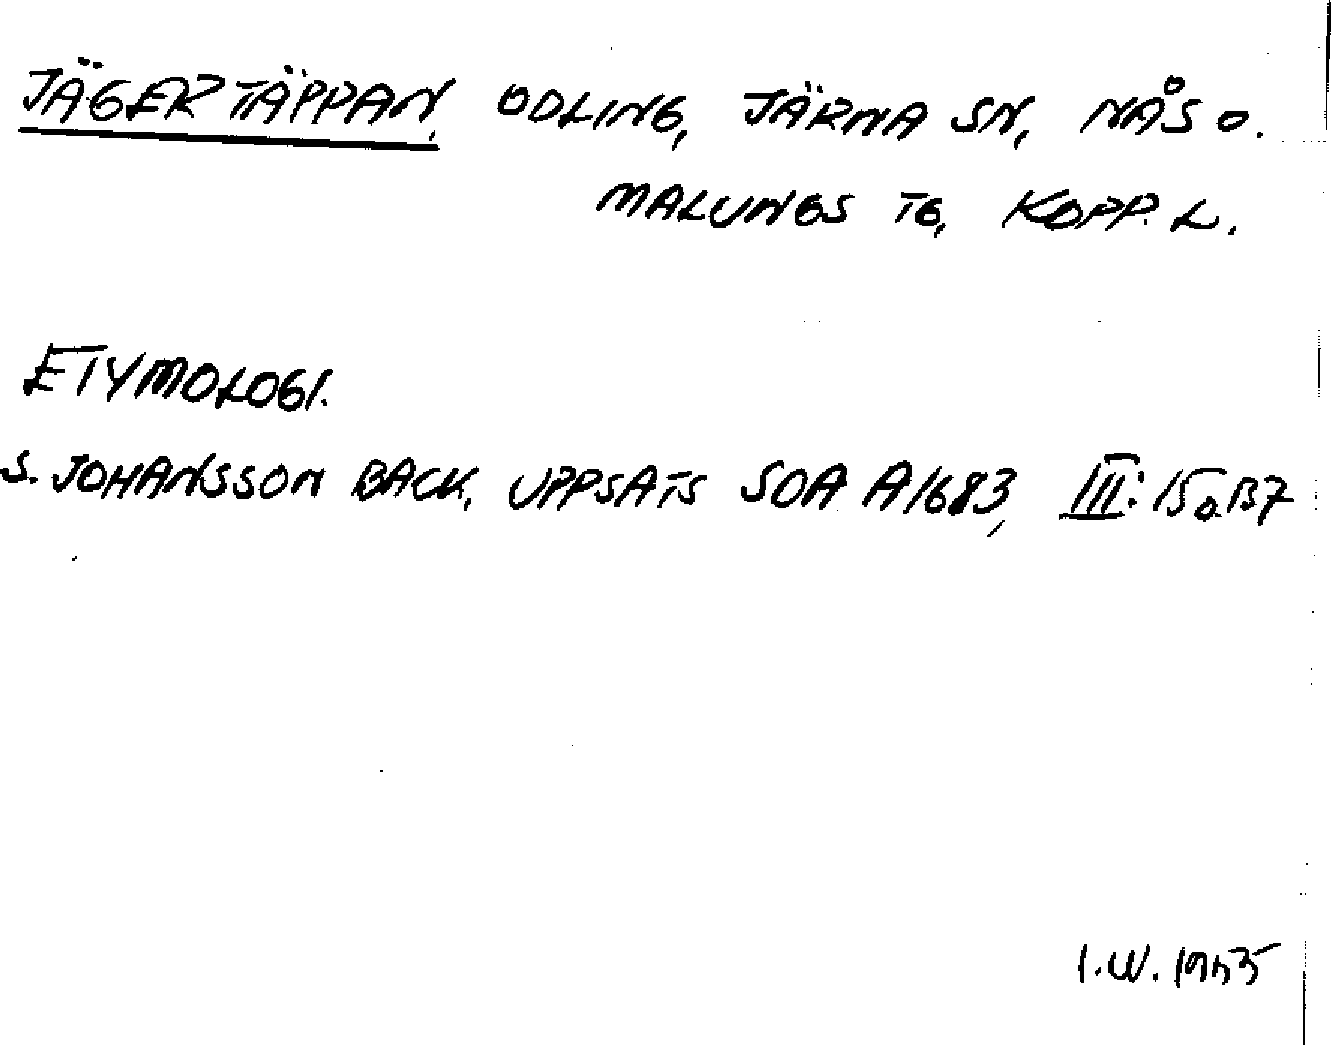 JÄGERTÄPPAN, ODLING, JÄRNA SN, NÅS O.
MALUNGS TG, KOPP. L.
ETYMOLOGI.
S. JOHANSSON BACK, UPPSATS SOA A1683, III: 15 o. 137
I.W.